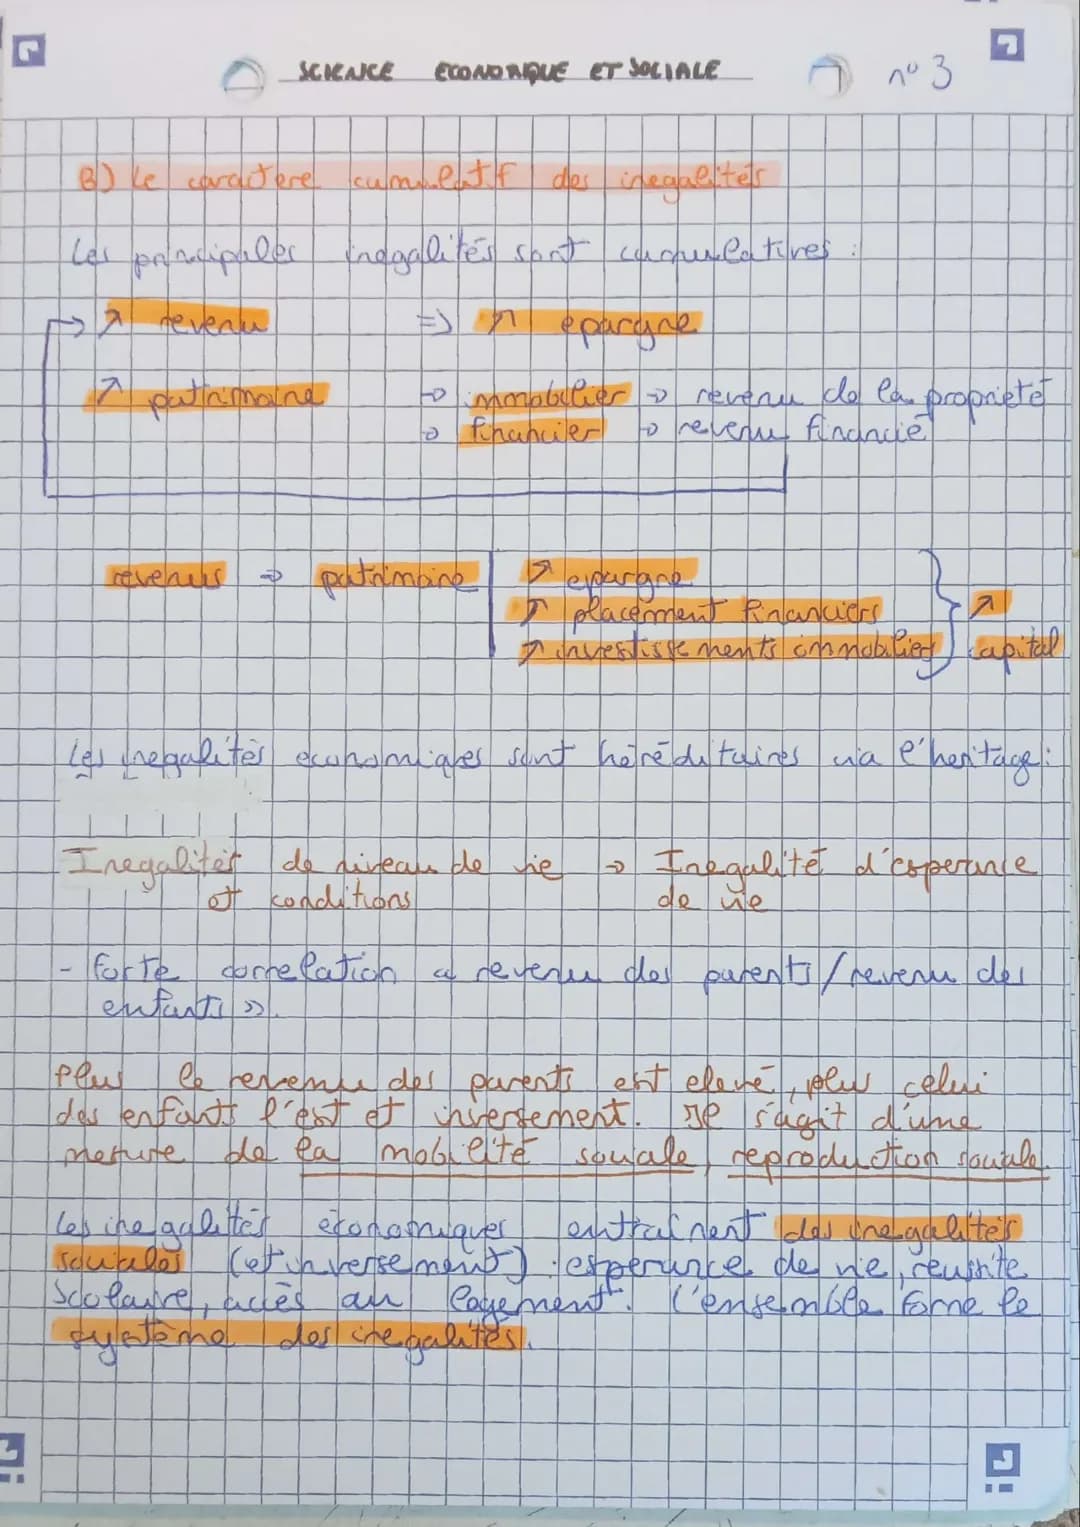 SCIENCE ECONOMIQUE ET SOCIALE n° 3
B) Le caractere cumulatif des inegalités
Les principales inégalités sont cumulatives :
→ ↗ revenu => ↗ epargne
↗ patrimoine → immobilier → revenu de la propriété
→ financier → revenu financié
revenus → patrimoine ↗ epargne
↗ placement financiers ↗
↗ investissements immobiliers capital
Les inegalités économiques sont héréditaires via l'heritage :
Inegalités de niveau de vie → Inegalité d'esperance
et conditions de vie
- Forte correlation « revenu des parents / revenu des
enfants ».
Plus le revenu des parents est elevé, plus celui
des enfants l'est et inversement. Il s'agit d'une
mesure de la mobilité sociale, reproduction sociale.
Les inegalités économiques entraînent des inegalités
sociales (et inversement) : esperance de vie, reussite
scolaire, accès au logement. L'ensemble forme le
système des inegalités.